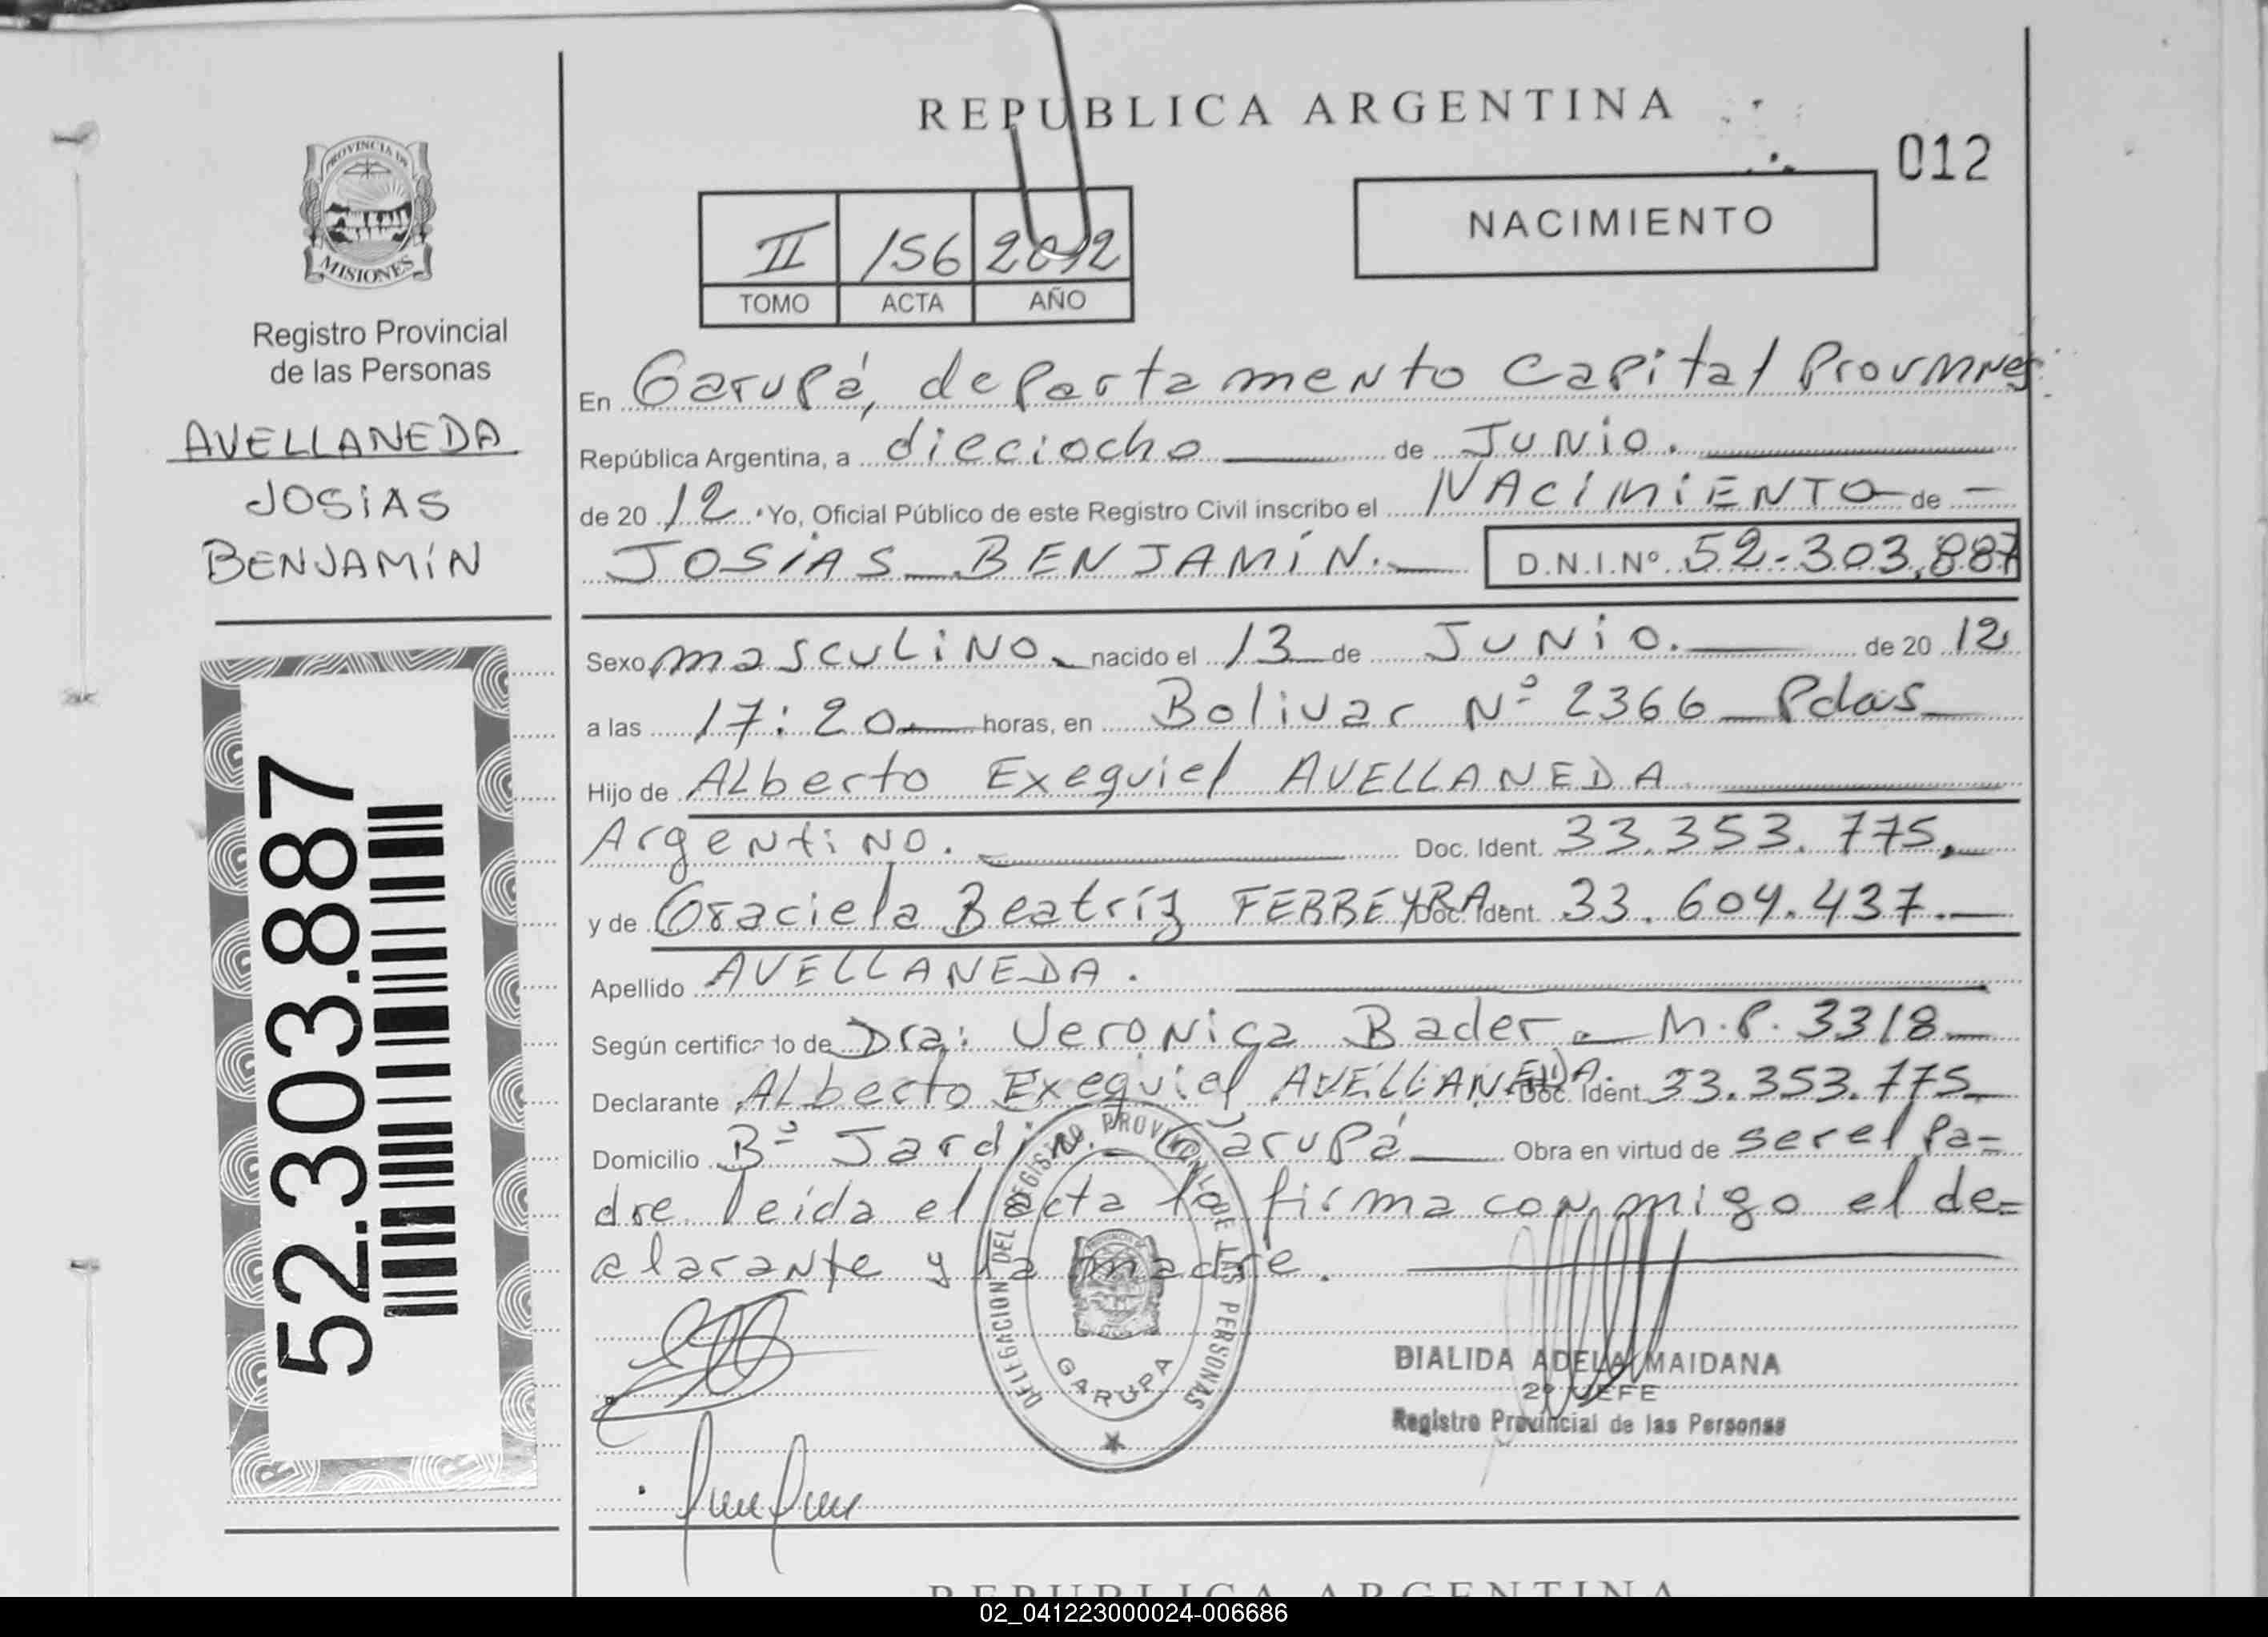 REPUBLICA ARGENTINA
012
NACIMIENTO
II 156 2012
TOMO ACTA AÑO
PROVINCIA DE
MISIONES
Registro Provincial
de las Personas
AVELLANEDA
JOSIAS
BENJAMÍN
52.303.887
En Garupá, departamento Capital Prov Mnes.
República Argentina, a dieciocho de Junio.
de 20 12. Yo, Oficial Público de este Registro Civil inscribo el NACIMIENTO de
JOSIAS BENJAMÍN. D.N.I.Nº 52-303.887
Sexo masculino nacido el 13 de JUNIO. de 20 12
a las 17:20 horas, en Bolivar Nº 2366 Pdas
Hijo de Alberto Exequiel AVELLANEDA
Argentino. Doc. Ident. 33.353.775.
y de Graciela Beatríz FERREYRA. Doc. Ident. 33.604.437.
Apellido AVELLANEDA.
Según certificado de Dra: Veronica Bader. M.P. 3318
Declarante Alberto Exequiel AVELLANEDA. Doc. Ident. 33.353.775
Domicilio Bº Jardin. Garupá Obra en virtud de ser el Pa=
dre. leída el acta la firma conmigo el de=
clarante y la madre.
DELEGACION DEL REGISTRO PROVINCIAL DE LAS PERSONAS
GARUPA
DIALIDA ADELA MAIDANA
2º JEFE
Registro Provincial de las Personas
REPUBLICA ARGENTINA
02_041223000024-006686